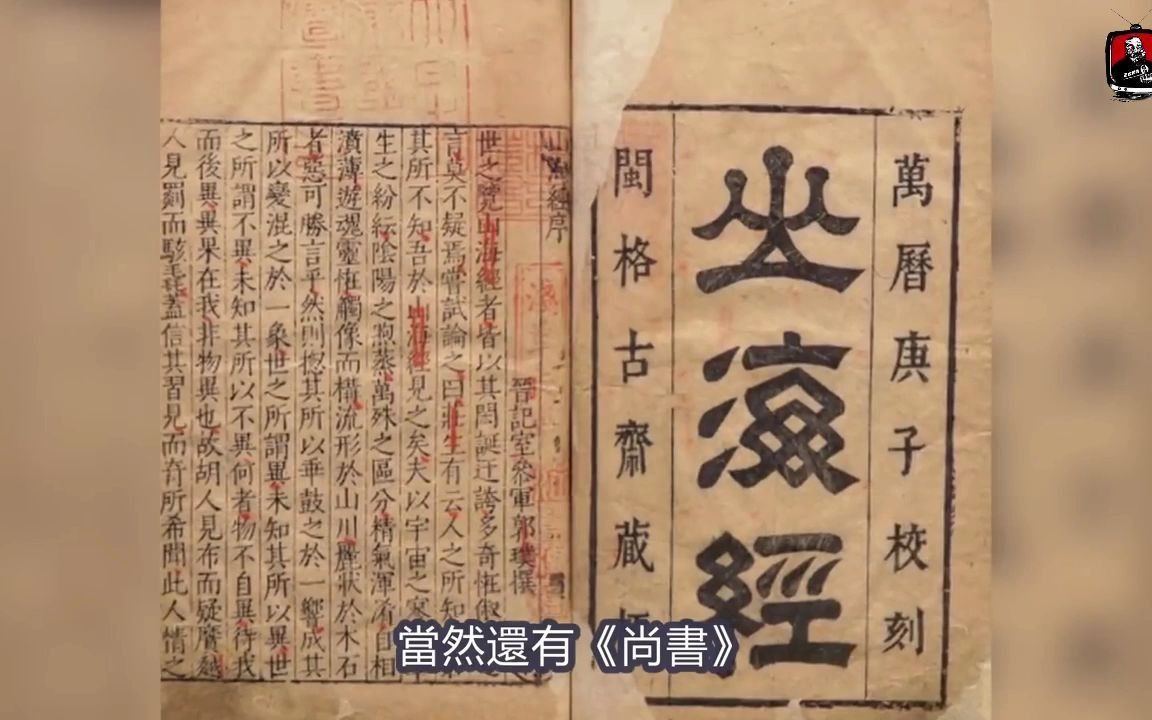 萬曆庚子校刻
山海經
閩格古齋藏
山海經序
晉記室參軍郭璞撰
世之覽山海經者皆以其閎誕迂誇多奇怪俶
言莫不疑焉嘗試論之曰莊生有云人之所知
其所不知吾於山海經見之矣夫以宇宙之寥
生之紛紜陰陽之煦蒸萬殊之區分精氣渾淆自相
濆薄遊魂靈怪觸像而構流形於山川麗狀於木石
者惡可勝言乎然則摠其所以乖鼓之於一響成其
所以變混之於一象世之所謂異未知其所以異世
之所謂不異未知其所以不異何者物不自異待我
而後異異果在我非物異也故胡人見布而疑黂越
人見罽而駭毳蓋信其習見而奇所希聞此人情之
當然還有《尚書》